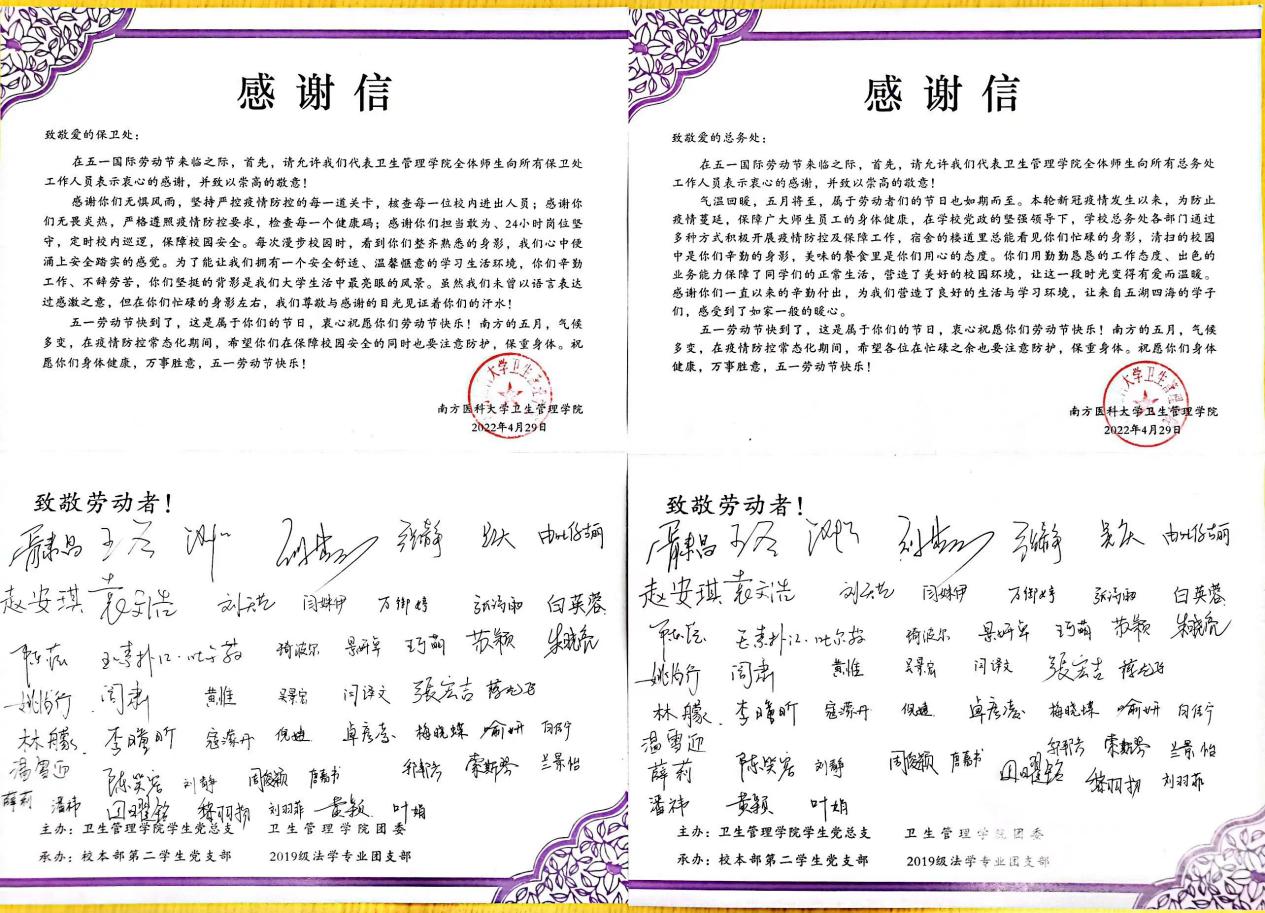 感谢信
致敬爱的保卫处：
在五一国际劳动节来临之际，首先，请允许我们代表卫生管理学院全体师生向所有保卫处
工作人员表示衷心的感谢，并致以崇高的敬意！
感谢你们无惧风雨，坚持严控疫情防控的每一道关卡，核查每一位校内进出人员；感谢你
们无畏炎热，严格遵照疫情防控要求，检查每一个健康码；感谢你们担当敢为、24小时岗位坚
守，定时校内巡逻，保障校园安全。每次漫步校园时，看到你们整齐熟悉的身影，我们心中便
涌上安全踏实的感觉。为了能让我们拥有一个安全舒适、温馨惬意的学习生活环境，你们辛勤
工作、不辞劳苦，你们坚挺的背影是我们大学生活中最亮眼的风景。虽然我们未曾以语言表达
过感激之意，但在你们忙碌的身影左右，我们尊敬与感谢的目光见证着你们的汗水！
五一劳动节快到了，这是属于你们的节日，衷心祝愿你们劳动节快乐！南方的五月，气候
多变，在疫情防控常态化期间，希望你们在保障校园安全的同时也要注意防护，保重身体。祝
愿你们身体健康，万事胜意，五一劳动节快乐！
南方医科大学卫生管理学院
2022年4月29日
感谢信
致敬爱的总务处：
在五一国际劳动节来临之际，首先，请允许我们代表卫生管理学院全体师生向所有总务处
工作人员表示衷心的感谢，并致以崇高的敬意！
气温回暖，五月将至，属于劳动者们的节日也如期而至。本轮新冠疫情发生以来，为防止
疫情蔓延，保障广大师生员工的身体健康，在学校党政的坚强领导下，学校总务处各部门通过
多种方式积极开展疫情防控及保障工作，宿舍的楼道里总能看见你们忙碌的身影，清扫的校园
中是你们辛勤的身影，美味的餐食里是你们用心的态度。你们用勤勤恳恳的工作态度、出色的
业务能力保障了同学们的正常生活，营造了美好的校园环境，让这一段时光变得有爱而温暖。
感谢你们一直以来的辛勤付出，为我们营造了良好的生活与学习环境，让来自五湖四海的学子
们，感受到了如家一般的暖心。
五一劳动节快到了，这是属于你们的节日，衷心祝愿你们劳动节快乐！南方的五月，气候
多变，在疫情防控常态化期间，希望各位在忙碌之余也要注意防护，保重身体。祝愿你们身体
健康，万事胜意，五一劳动节快乐！
南方医科大学卫生管理学院
2022年4月29日
致敬劳动者！
张静
赵安琪 袁文浩 闫姝伊 万御婷 白英蓉
琦波尔 景妍卓 苏颖 朱晓亮
闫肃 黄惟 吴景宏 闫译文 张宏吉
林艨 李暄昕 寇蒎丹 倪婕 卓彦菱 梅晓蝶 喻妍
温雪迎 陈笑容 刘静 周俊颖 唐嘉书 索斯琴 兰景怡
薛莉 潘祎 田曜铭 黎羽扬 刘羽菲 黄颖 叶娟
主办：卫生管理学院学生党总支 卫生管理学院团委
承办：校本部第二学生党支部 2019级法学专业团支部
致敬劳动者！
张静
赵安琪 袁文浩 闫姝伊 万御婷 白英蓉
琦波尔 景妍卓 苏颖 朱晓亮
闫肃 黄惟 吴景宏 闫译文 张宏吉
林艨 李暄昕 寇蒎丹 倪婕 卓彦菱 梅晓蝶 喻妍
温雪迎
薛莉 陈笑容 刘静 周俊颖 唐嘉书 田曜铭 索斯琴 兰景怡
黎羽扬 刘羽菲
潘祎 黄颖 叶娟
主办：卫生管理学院学生党总支 卫生管理学院团委
承办：校本部第二学生党支部 2019级法学专业团支部